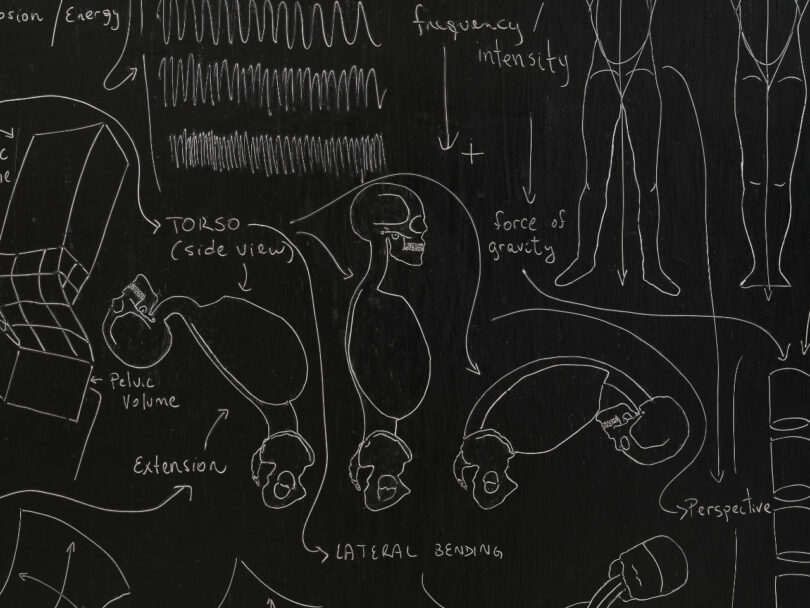 / Energy
frequency /
intensity
+
TORSO
(side view)
force of
gravity
Pelvic
Volume
Extension
Perspective
LATERAL BENDING